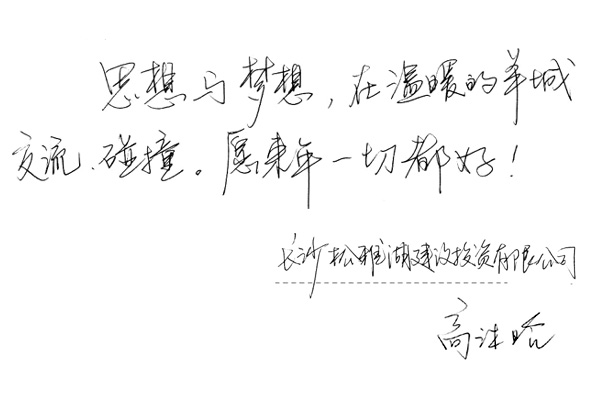 思想与梦想，在温暖的羊城
交流、碰撞。愿来年一切都好！
长沙松雅湖建设投资有限公司
高